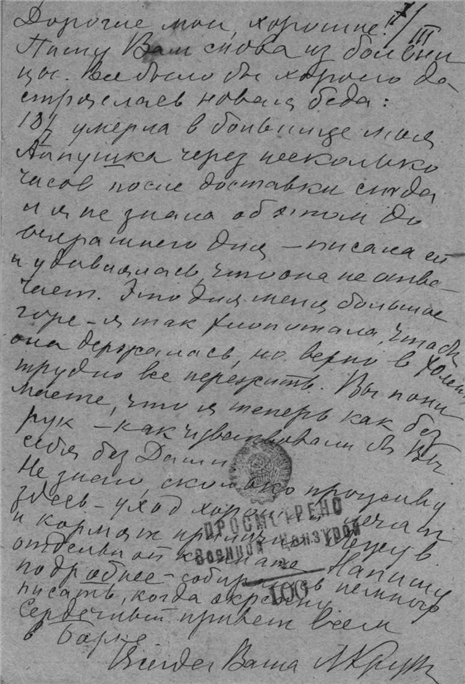 Дорогие мои, хорошие! 7/III
Пишу Вам снова из больни
цы. Все было бы хорошо да
стряслась новая беда:
18/ умерла в больнице моя
Аннушка через несколько
часов после доставки сюда
и я не знала об этом до
вчерашнего дня – писала ей
и удивлялась, что она не отве-
чает. Это для меня большое
горе – я так хлопотала, чтобы
она держалась, но верно в
трудно все пережить. Вы пони
маете, что я теперь как без
рук – как чувствовали бы Вы
себя без Даши
Не знаю сколько пролежу
здесь – уход хороший, лечат
и кормят прилично. Лежу в
отдельной комнате. Напишу
подробнее – собираюсь немного
писать, когда окрепну.
Сердечный привет всем
в
Всегда Ваша
ПРОСМОТРЕНО
Военной Цензурой
100